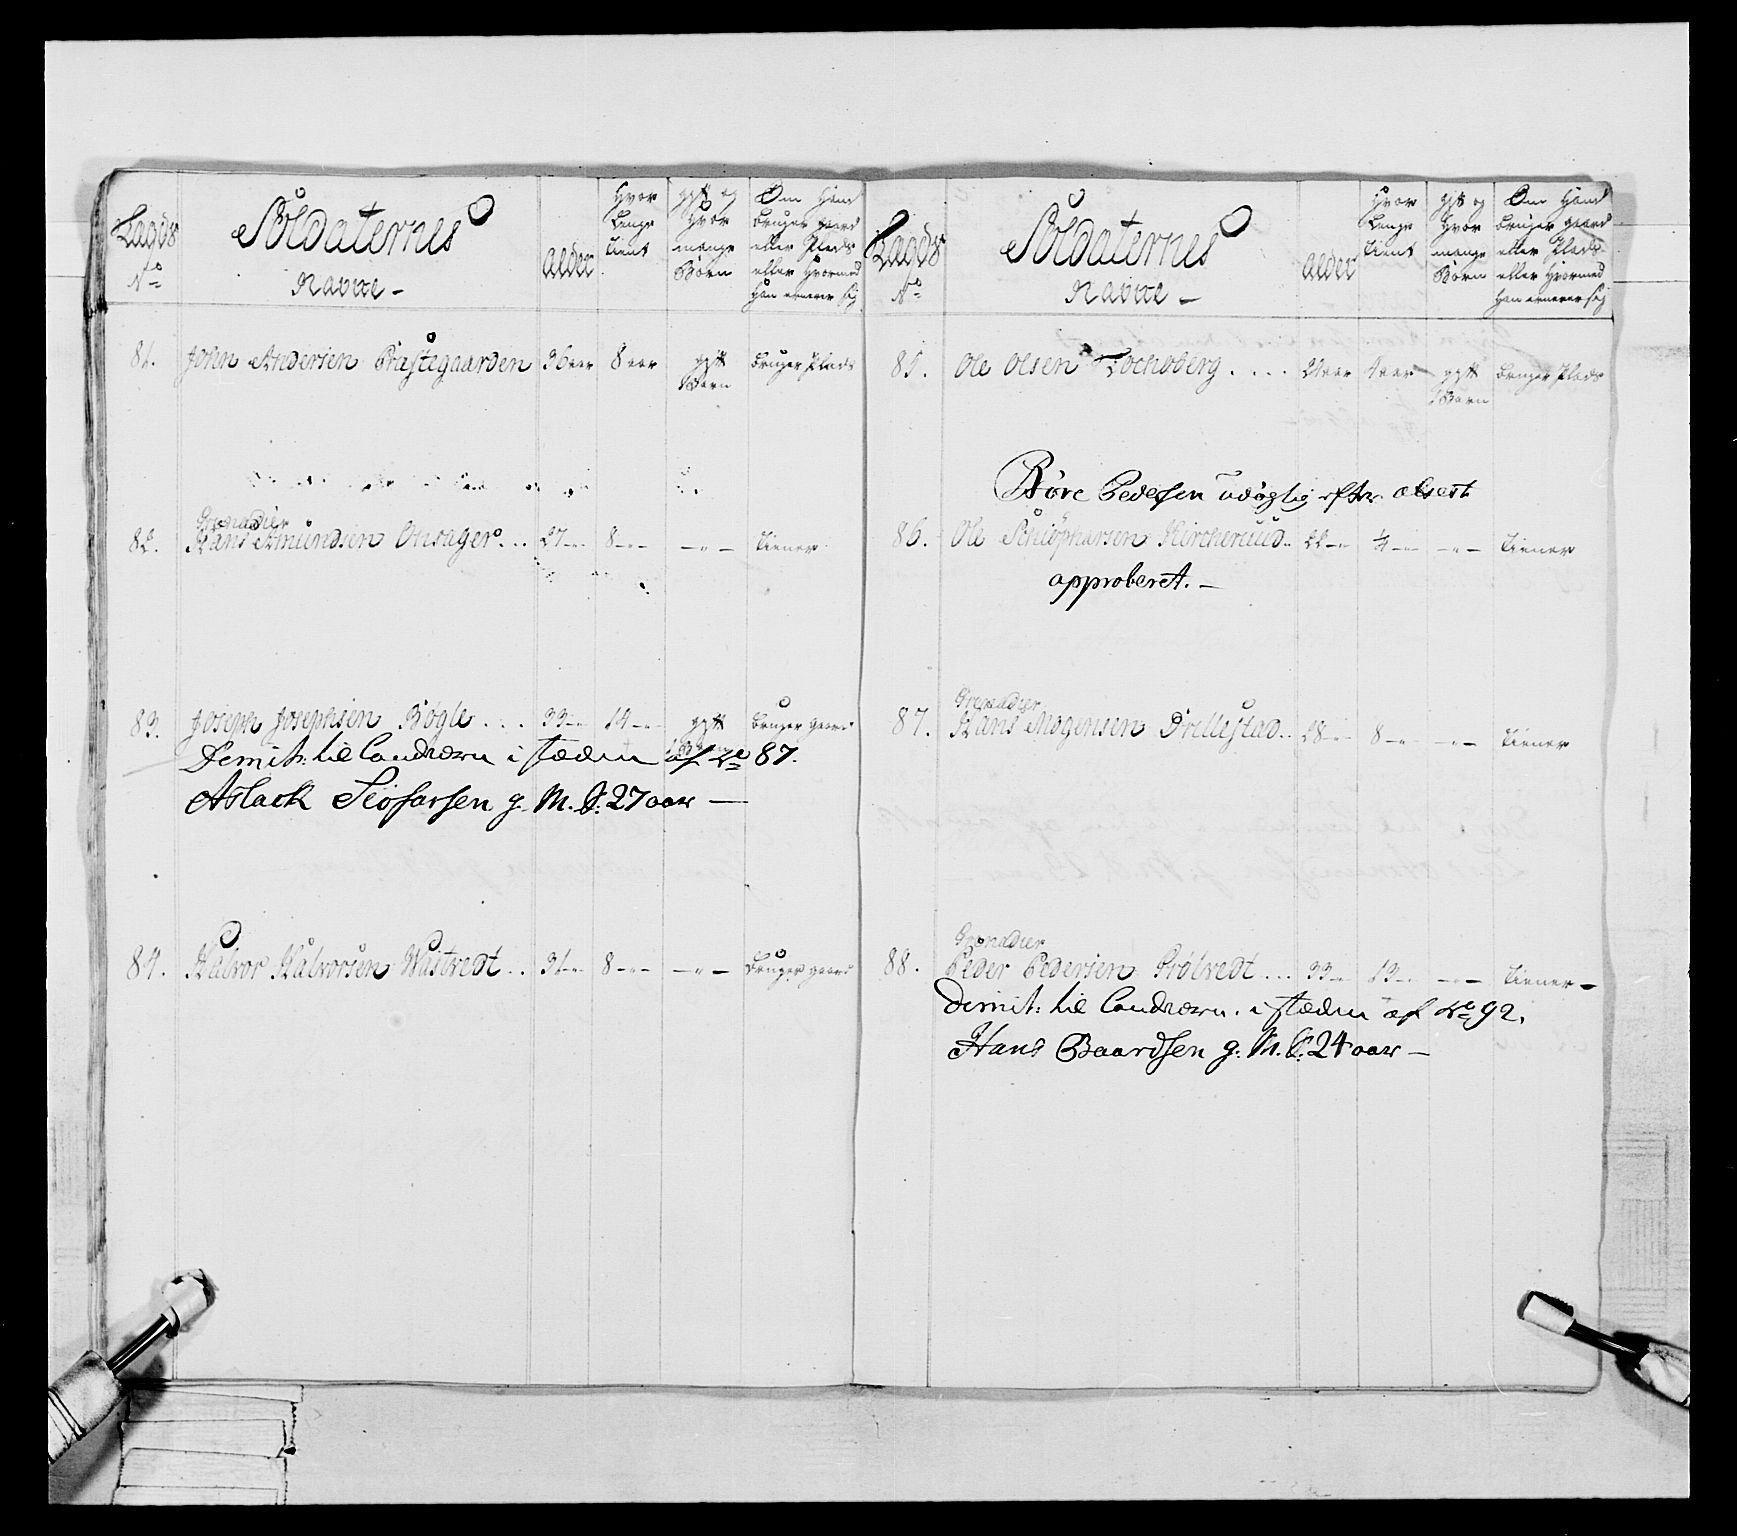 Lagds
No
Soldaternes
Navne -
alder
Hvor
Længe
tient
gift og
Hvor
mange
Børn
Om Hand
bruger gaard
eller Plads
eller Hvormed
Han ernerer sig
81. John Andersen Præstegaarden 36 aar 8 aar gift bruger Plads
Børn
Grenadier
82. Hans Amundsen Onsager ... 27 - " - 8 - " - - " - tiener
83. Joseph Josephsen Bögle .... 33 - " - 14 - " - gift bruger gaard
Demit: til Landværn i stæden af No 87.
Aslack g. M. S. 27 aar —
84. Halvor Halvorsen Wastvedt .. 31 - " - 8 - " - - " - bruger gaard
Lagds
No
Soldaternes
Navne -
alder
Hvor
Længe
tient
gift og
Hvor
mange
Børn
Om Hand
bruger gaard
eller Plads
eller Hvormed
Han ernerer sig
85. Ole Olsen .... aar aar gift bruger Plads
Børn
Pedersen udögtig efter
86. Ole Kircheruud .. 22 - " - - " - tiener
approberet. -
Grenadier
87. Hans Mogensen .. 28 - " - 8 - " - - " - tiener
Grenadier
88. Peder Pedersen ... 33 - " - 13 - " - - " - tiener -
Demit: til Landværn. i stæden af No 92.
Hans Baardsen g. M. S. 24 aar -